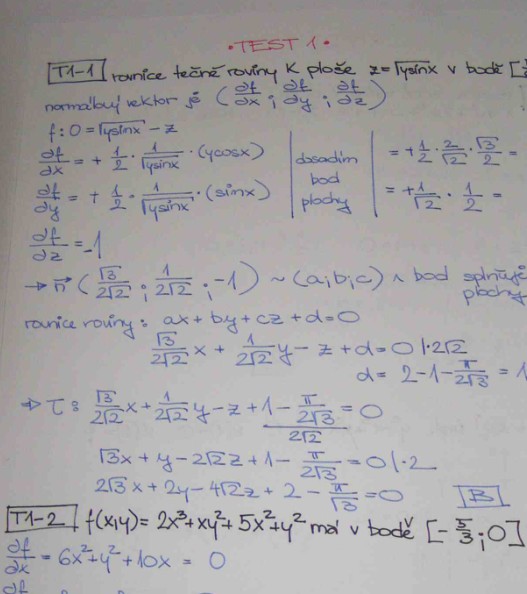 • TEST 1 •
T1-1 rovnice tečné roviny k ploše z=√ysinx v bodě [
normálový vektor je (∂f/∂x ; ∂f/∂y ; ∂f/∂z)
f: 0=√ysinx − z
∂f/∂x = + 1/2 · 1/√ysinx · (ycosx) | dosadím | = + 1/2 · 2/√2 · √3/2 =
∂f/∂y = + 1/2 · 1/√ysinx · (sinx) | bod plochy | = + 1/√2 · 1/2 =
∂f/∂z = -1
→ n⃗ (√3/2√2 ; 1/2√2 ; -1) ~ (a;b;c) ∧ bod splňuje
plochy
rovnice roviny: ax + by + cz + d = 0
√3/2√2 x + 1/2√2 y − z + d = 0 |·2√2
d = 2 − 1 − π/2√3 = 1
⇒ τ: √3/2√2 x + 1/2√2 y − z + (1 − π/2√3)/2√2 = 0
√3x + y − 2√2z + 1 − π/2√3 = 0 |·2
2√3x + 2y − 4√2z + 2 − π/√3 = 0 B
T1-2 f(x,y) = 2x³+xy²+5x²+y² má v bodě [-5/3;0]
∂f/∂x = 6x²+y²+10x = 0
∂f